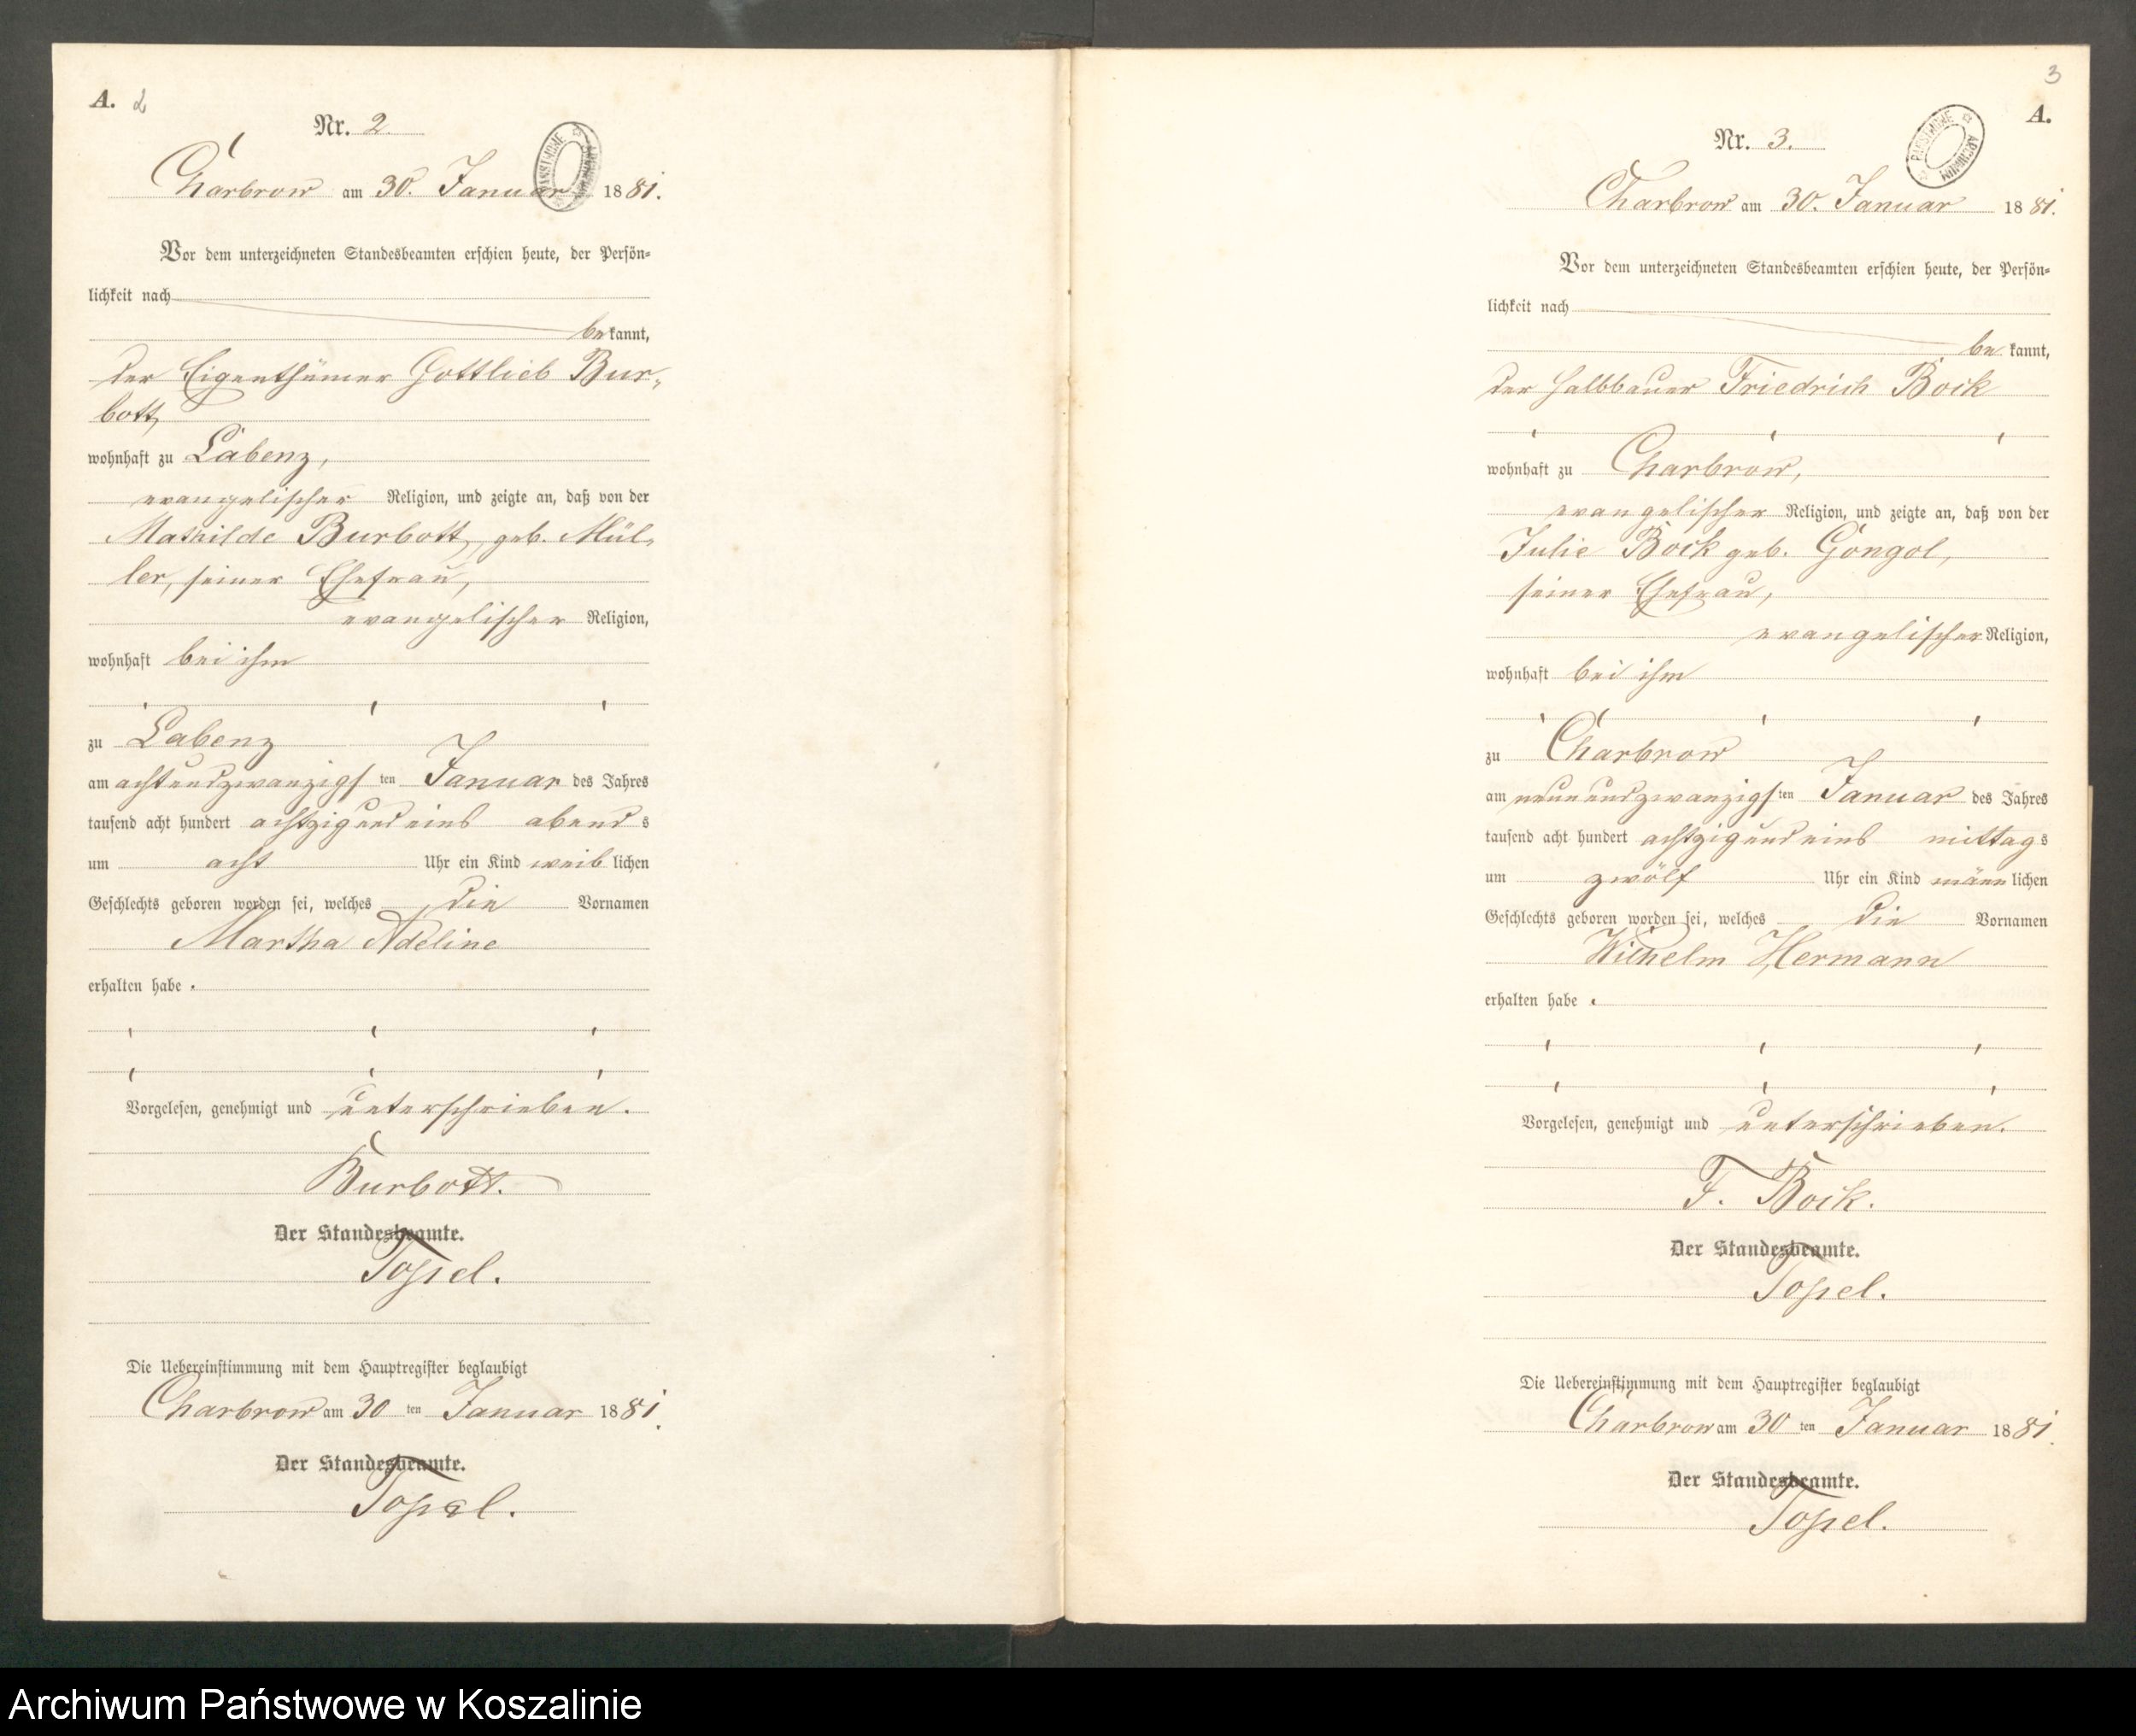 A. 2
Nr. 2.
Charbrow am 30. Januar 1881.
PAŃSTWOWE ARCHIWUM
Vor dem unterzeichneten Standesbeamten erschien heute, der Persön-
lichkeit nach
bekannt,
der Eigenthümer Gottlieb Bur-
bott,
wohnhaft zu Labenz,
evangelischer Religion, und zeigte an, daß von der
Mathilde Burbott, geb. Mül-
ler, seiner Ehefrau,
evangelischer Religion,
wohnhaft bei ihm
zu Labenz
am achtundzwanzigsten Januar des Jahres
tausend acht hundert achtzig und eins abends
um acht Uhr ein Kind weiblichen
Geschlechts geboren worden sei, welches die Vornamen
Martha Adeline
erhalten habe.
Vorgelesen, genehmigt und unterschrieben.
Burbott.
Der Standesbeamte.
Topel.
Die Uebereinstimmung mit dem Hauptregister beglaubigt
Charbrow am 30ten Januar 1881.
Der Standesbeamte.
Topel.
3
A.
Nr. 3.
PAŃSTWOWE ARCHIWUM
Charbrow am 30. Januar 1881.
Vor dem unterzeichneten Standesbeamten erschien heute, der Persön-
lichkeit nach
bekannt,
der Halbbauer Friedrich Bock
wohnhaft zu Charbrow,
evangelischer Religion, und zeigte an, daß von der
Julie Bock geb. Gongol,
seiner Ehefrau,
evangelischer Religion,
wohnhaft bei ihm
zu Charbrow
am neunundzwanzigsten Januar des Jahres
tausend acht hundert achtzig und eins mittags
um zwölf Uhr ein Kind männlichen
Geschlechts geboren worden sei, welches die Vornamen
Wilhelm Hermann
erhalten habe.
Vorgelesen, genehmigt und unterschrieben.
F. Bock.
Der Standesbeamte.
Topel.
Die Uebereinstimmung mit dem Hauptregister beglaubigt
Charbrow am 30ten Januar 1881.
Der Standesbeamte.
Topel.
Archiwum Państwowe w Koszalinie